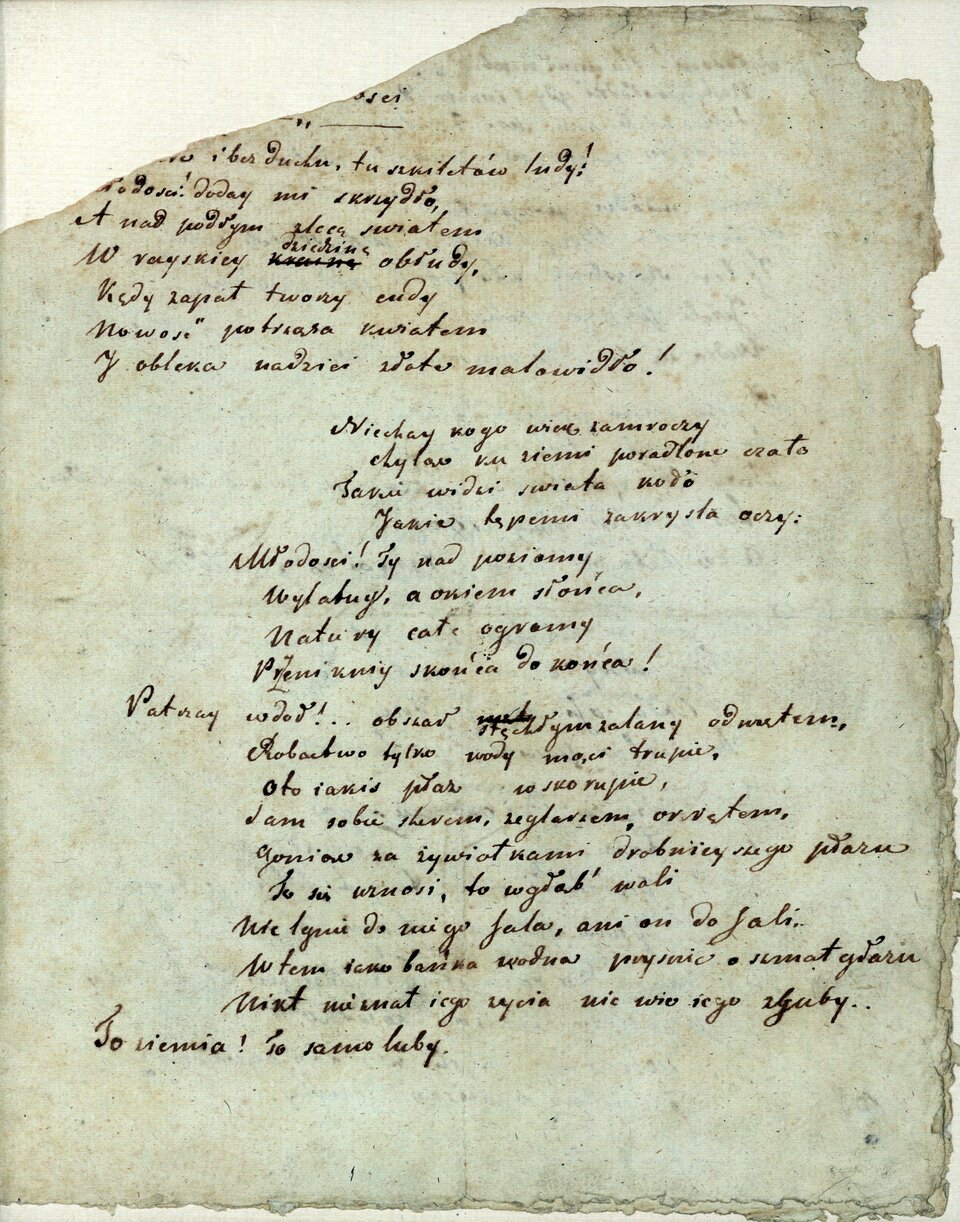 ości
i bez duchu, tu szkiletów ludy!
łodości! doday mi skrzydło,
A nad podłym zlecę swiatem
W rayskiey krainę dziedzinę obłudy,
Kędy zapał tworzy cudy
Nowość potrząsa kwiatem
J obleka nadziei złote malowidło!
Niechay kogo wiek zamroczy
chyląc ku ziemi poradlone czoło
Takie widzi swiata koło
Jakie tępemi zakrysla oczy:
Młodości! Ty nad poziomy
Wylatuy, a okiem słońca,
Natury całe ogromy
Przenikniy skończa do końca!
Patrzay wdoł!.. obszar stęchłym zalany odmętem,
Robactwo tylko wody mąci trupie,
Oto iakis płaz w skorupie,
Sam sobie sterem, żeglarzem, okrętem,
Goniąc za żywiołkami drobnieyszego płazu
To się wznosi, to wgłąb' wali
Nie lgnie do niego fala, ani on do fali..
Wtem iako bańka wodna prysnie o szmat głazu
Nikt nieznał iego życia nie wie iego zguby..
To ziemia! To samoluby.